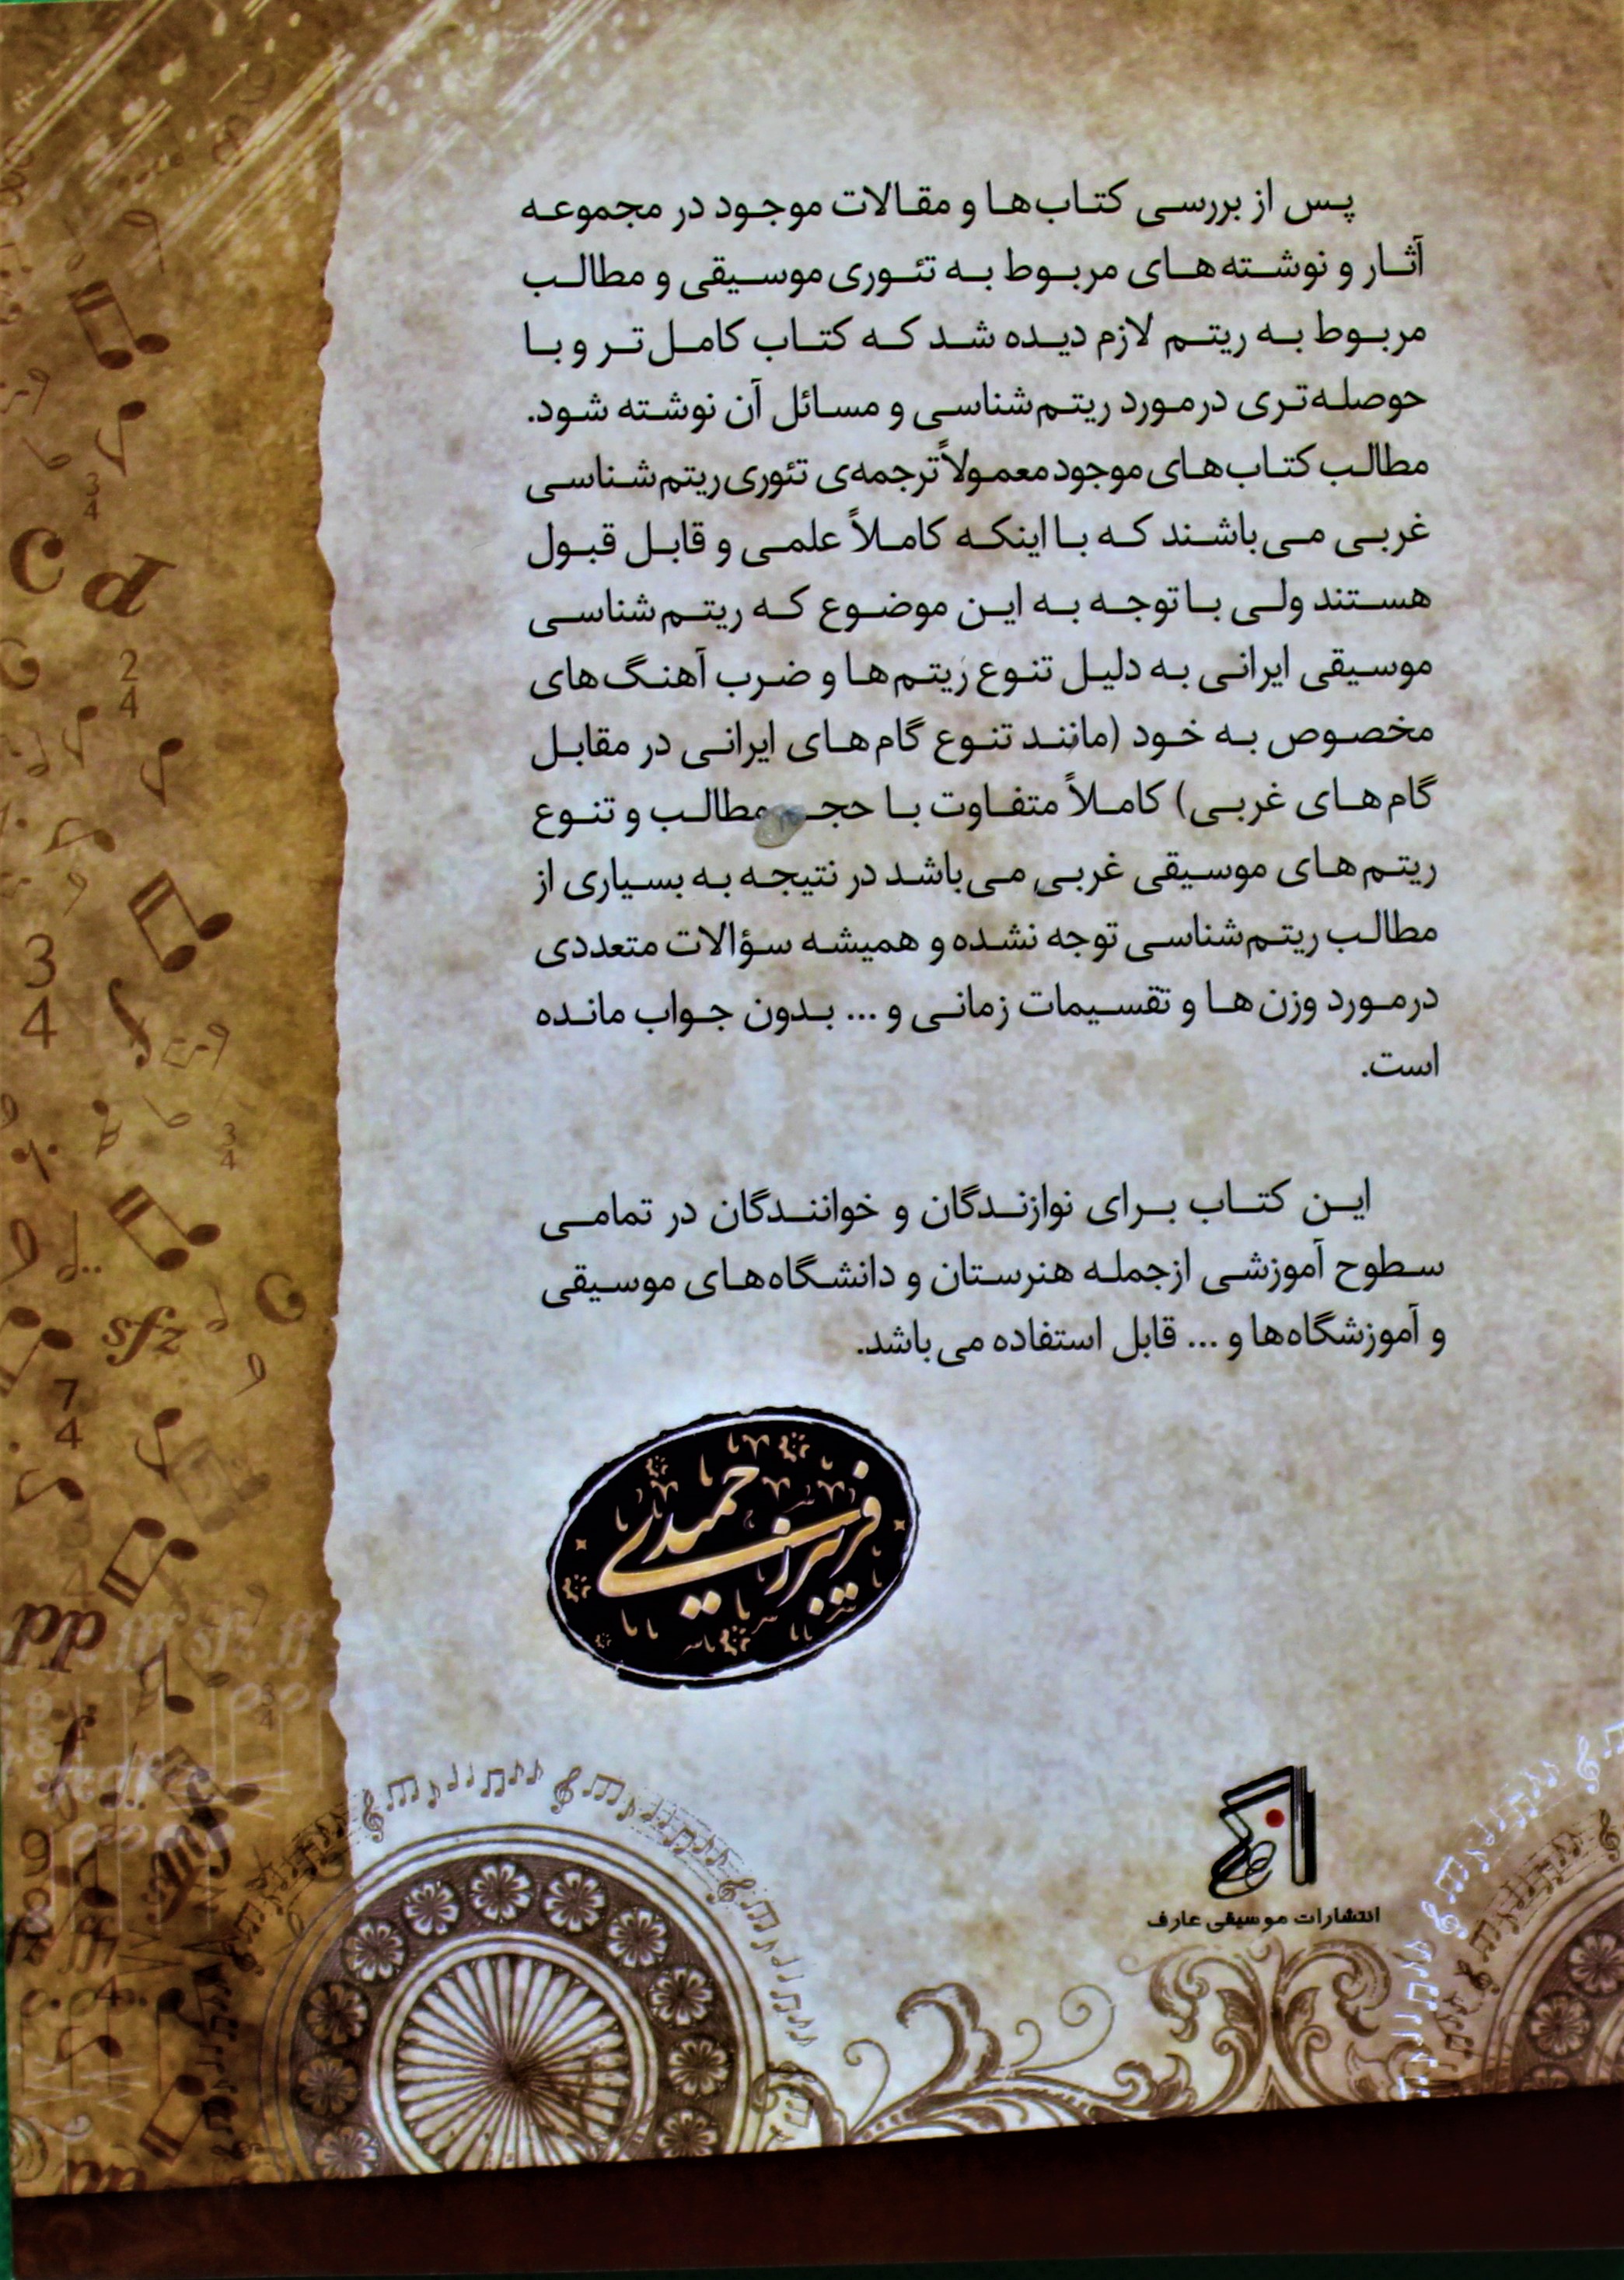 پس از بررسی کتاب‌ها و مقالات موجود در مجموعه
آثار و نوشته‌های مربوط به تئوری موسیقی و مطالب
مربوط به ریتم لازم دیده شد که کتاب کامل‌تر و با
حوصله‌تری درمورد ریتم‌شناسی و مسائل آن نوشته شود.
مطالب کتاب‌های موجود معمولاً ترجمه‌ی تئوری ریتم‌شناسی
غربی می‌باشند که با اینکه کاملاً علمی و قابل قبول
هستند ولی با توجه به این موضوع که ریتم‌شناسی
موسیقی ایرانی به دلیل تنوع ریتم‌ها و ضرب آهنگ‌های
مخصوص به خود (مانند تنوع گام‌های ایرانی در مقابل
گام‌های غربی) کاملاً متفاوت با حجم مطالب و تنوع
ریتم‌های موسیقی غربی می‌باشد در نتیجه به بسیاری از
مطالب ریتم‌شناسی توجه نشده و همیشه سؤالات متعددی
درمورد وزن‌ها و تقسیمات زمانی و ... بدون جواب مانده
است.
این کتاب برای نوازندگان و خوانندگان در تمامی
سطوح آموزشی ازجمله هنرستان و دانشگاه‌های موسیقی
و آموزشگاه‌ها و ... قابل استفاده می‌باشد.
حمیدی
انتشارات موسیقی عارف